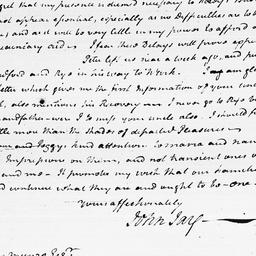 that my presence is deemed necessary to
not appear essential, especially as no Difficulties are to be
and it will be very little in my power to afford
pecuniary aid is I fear these Delays will prove
Peter left us near a week ago, and
Bedford and Rye in his way to N York. I am glad
letter which gives me the first Information of your
also mentions his Recovery — I never go to Rye
Grandfather — were I to miss your uncle also I should
little more than the shades of departed Pleasures —
your and Peggy's kind attention to maria and
Impressions on them, and not transient ones
and me — It promotes my wish that our Families
continue what they are and ought to be — one —
yours affectionately
John Jay
Munro Esqr.